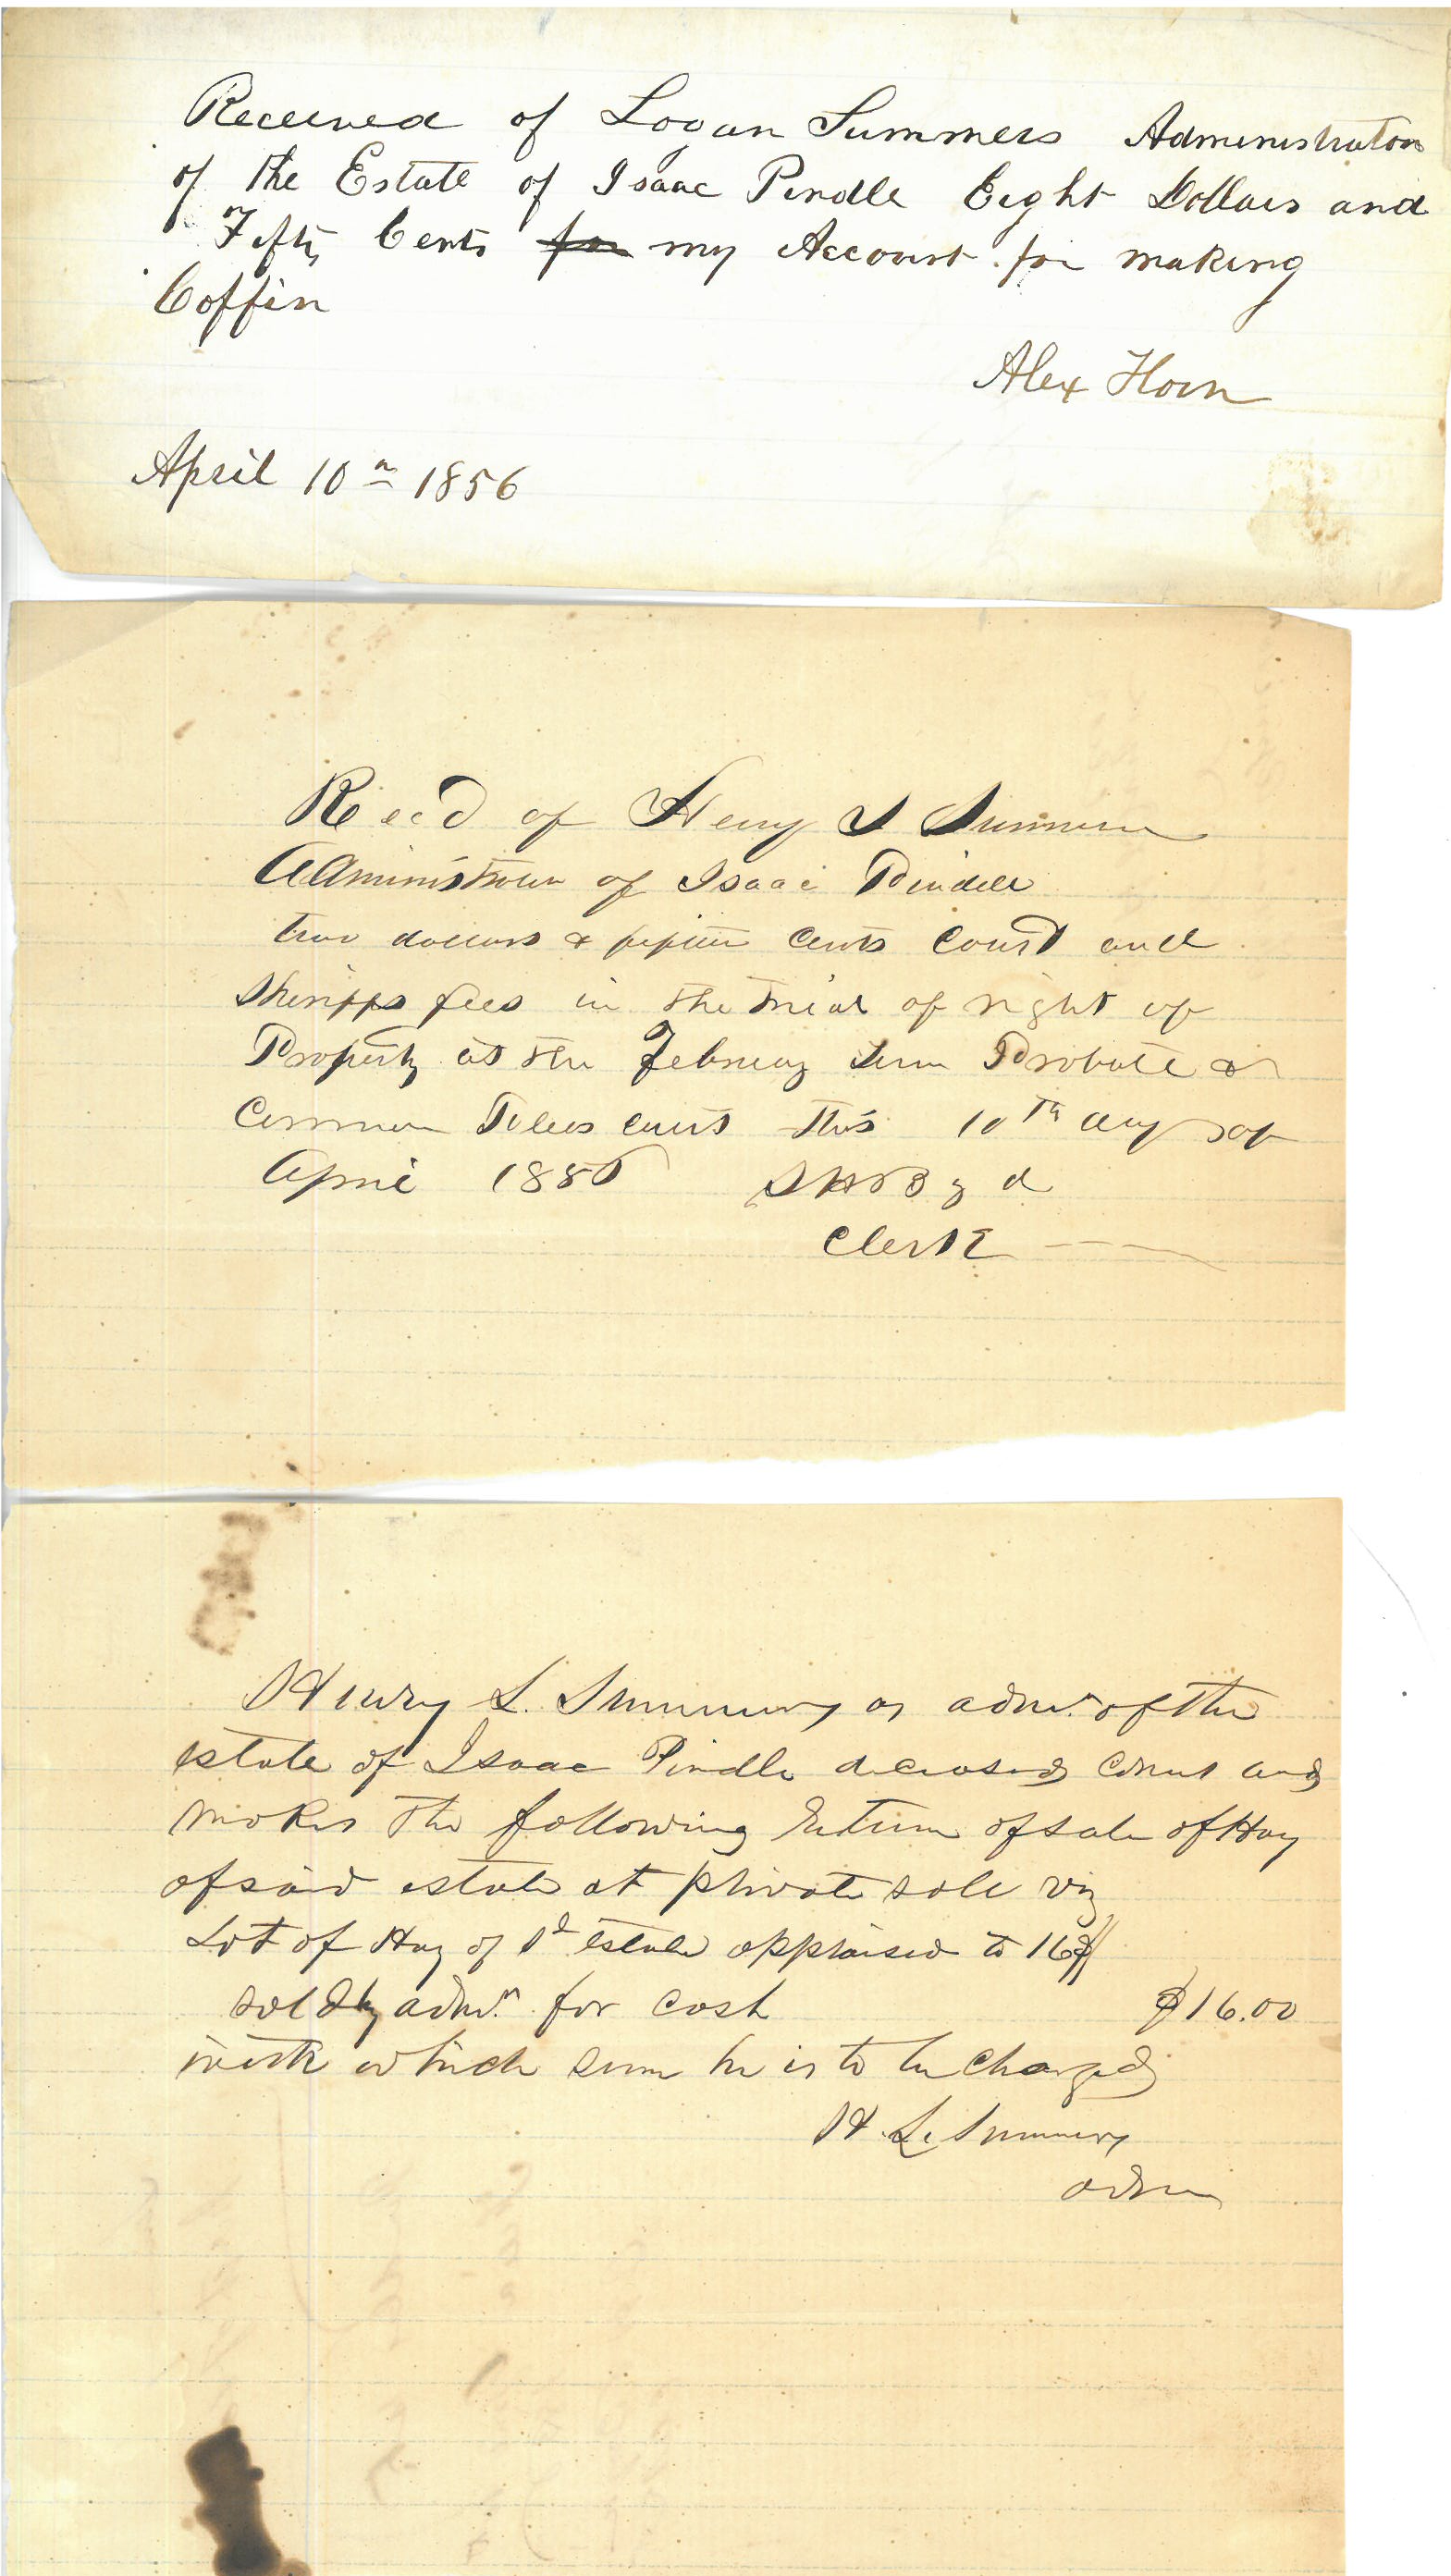 Received of Logan Summers Administrator
of the Estate of Isaac Pindle Eight Dollars and
Fifty Cents for my Account for making
Coffin
Alex Horn
April 10th 1856
Recd of Henry L Summers
Administrator of Isaac Pindell
two dollars & fifteen cents court and
Sheriffs fees in the trial of right of
Property at the February Term Probate &
Common Pleas court this 10th day of
April 1856 S H Boyd
Clerk
Henry L. Summers as admr. of the
estate of Isaac Pindle deceased comes and
makes the following return of sale of Hay
of said estate at private sale viz
Lot of Hay of sd estate appraised to 16$
sold by admr. for cash $16.00
with which sum he is to be charged
H. L. Summers
adm